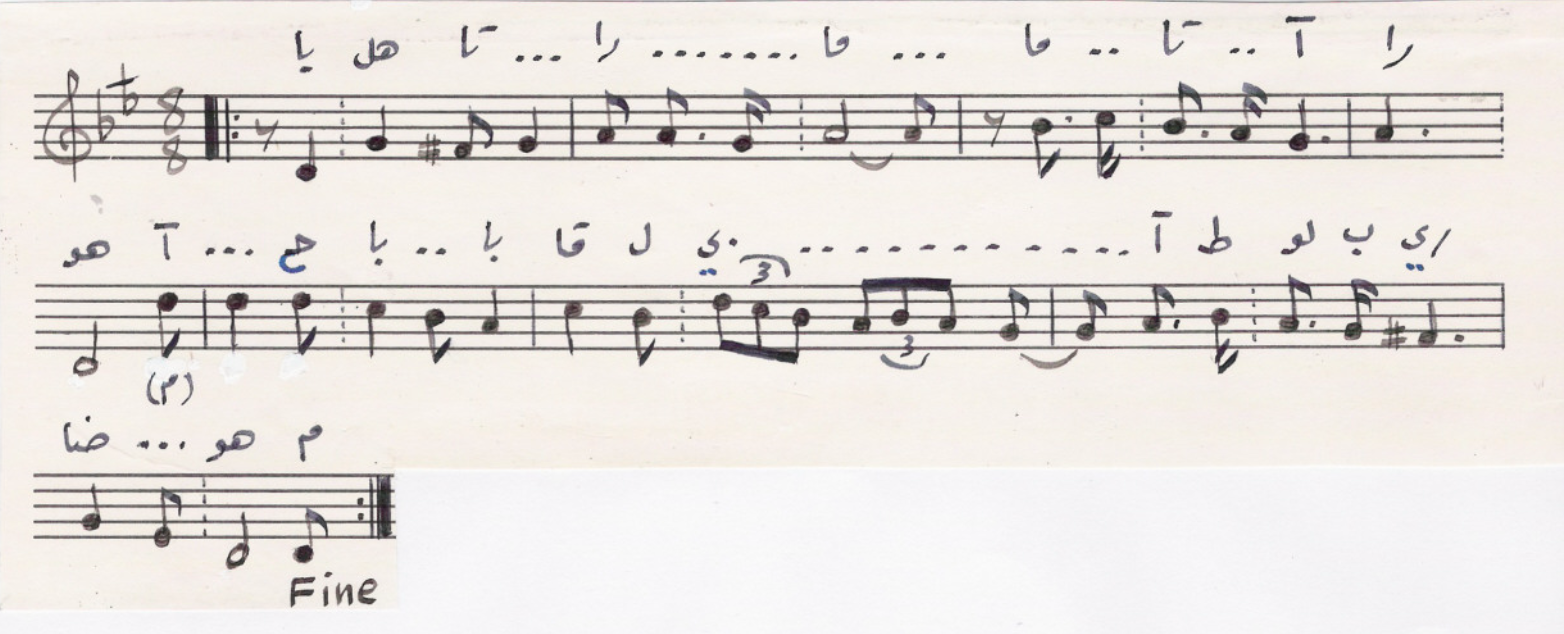 يا هل تا ... را ....... ما ... ما .. تا .. آ را
8
8
هو آ ... ح با .. با قا ل ي ............. آ ط لو ب ري
3
3
(م)
ضا ... هو م
Fine